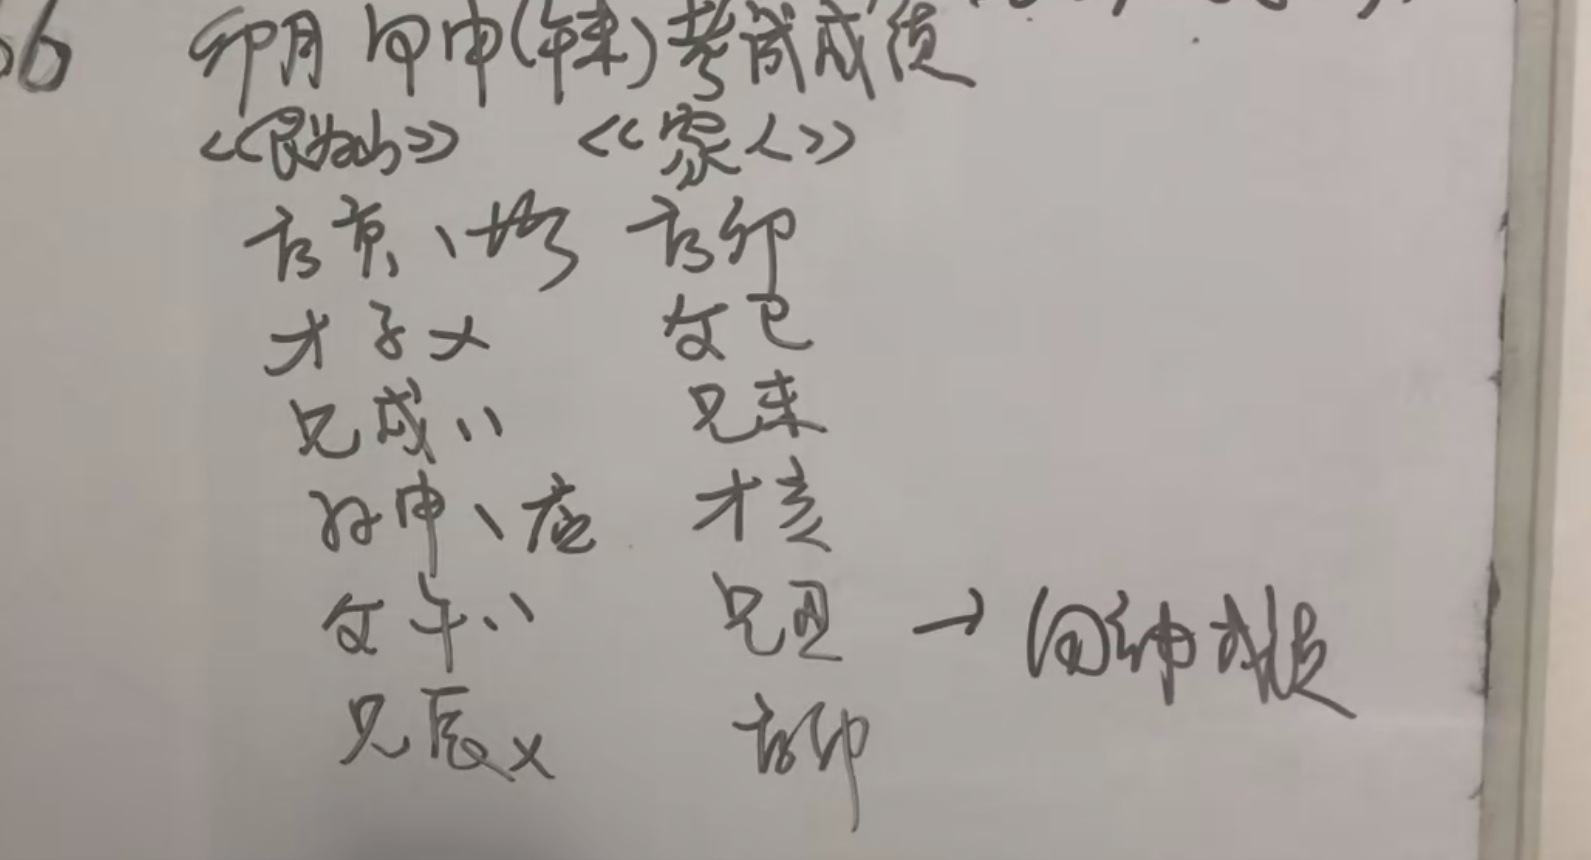 卯月 甲申(午未)考试成绩
<<艮为山>> <<家人>>
官寅、世 官卯
才子x 父巳
兄戌、、 兄未
孙申、应 才亥
父午、、 兄丑 →
兄辰x 官卯